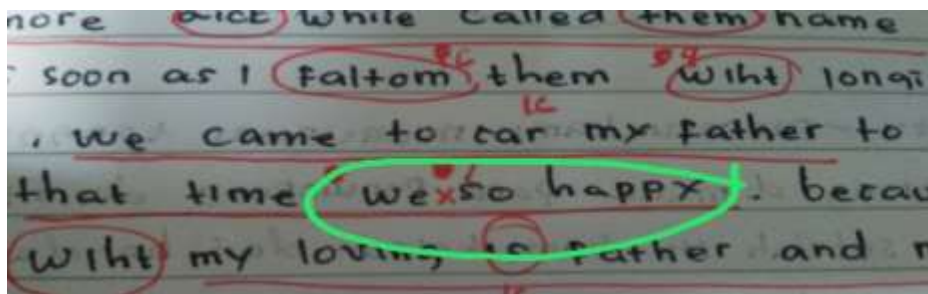 more while called them name
soon as I faltom them wiht longi
, we came to car my father to
that time we so happy. becau
wiht my loving is father and